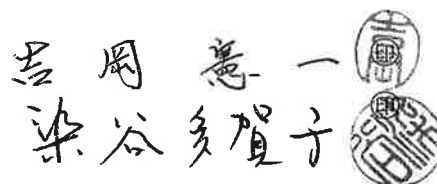 吉岡憲一 印
染谷多賀子 印